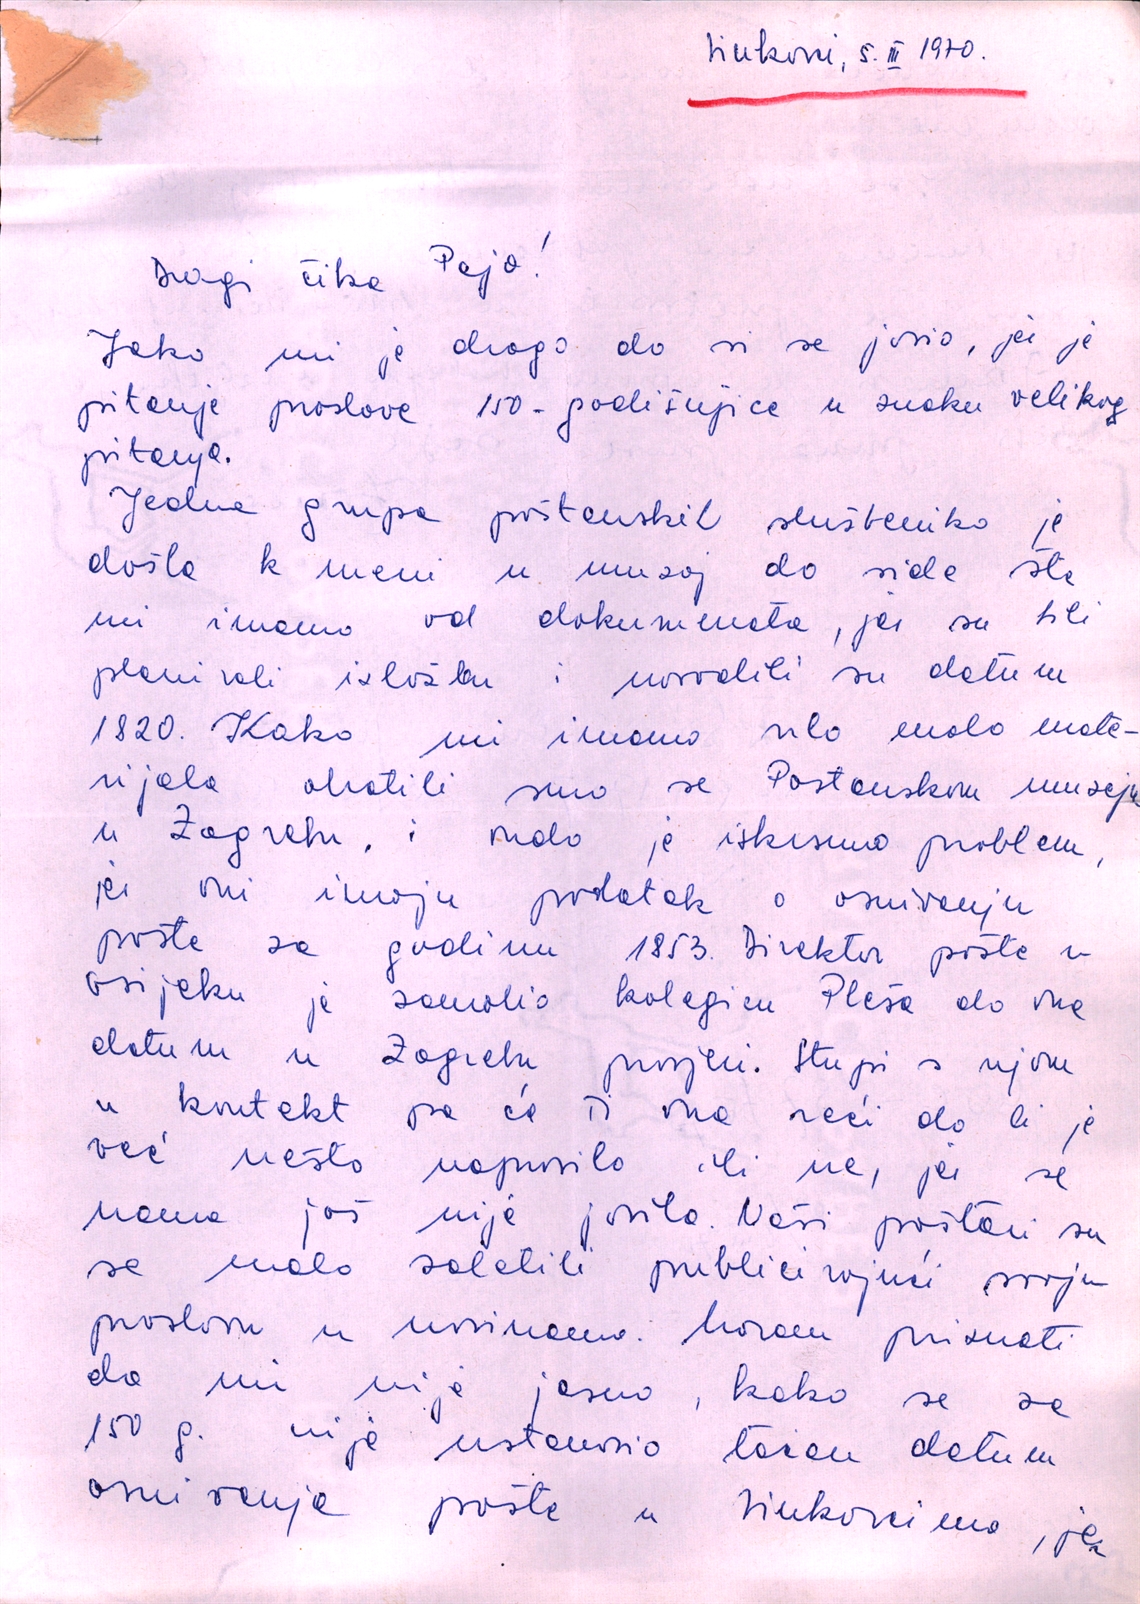 Vinkovci, 5. III 1970.
Dragi čika Pajo!
Jako mi je drago da si se javio, jer je
pitanje proslave 150-godišnjice u znaku velikog
pitanja.
Jedna grupa poštanskih službenika je
došla k meni u muzej da vide šta
mi imamo od dokumenata, jer su bili
planirali izložbu i navodili su datum
1820. Kako mi imamo vrlo malo mate-
rijala obratili smo se Poštanskom muzeju
u Zagrebu, i onda je iskrsnuo problem,
jer oni imaju podatak o osnivanju
pošte za godinu 1853. Direktor pošte u
Osijeku je zamolio kolegicu Pleša da ona
datum u Zagrebu provjeri. Stupi s njom
u kontakt pa će ti ona reći da li je
već nešto napravila ili ne, jer se
nama još nije javila. Naši poštari su
se malo zaletili publicirajući svoju
proslavu u novinama. Moram priznati
da mi nije jasno, kako se za
150 g. nije ustanovio tačan datum
osnivanja pošte u Vinkovcima, jer